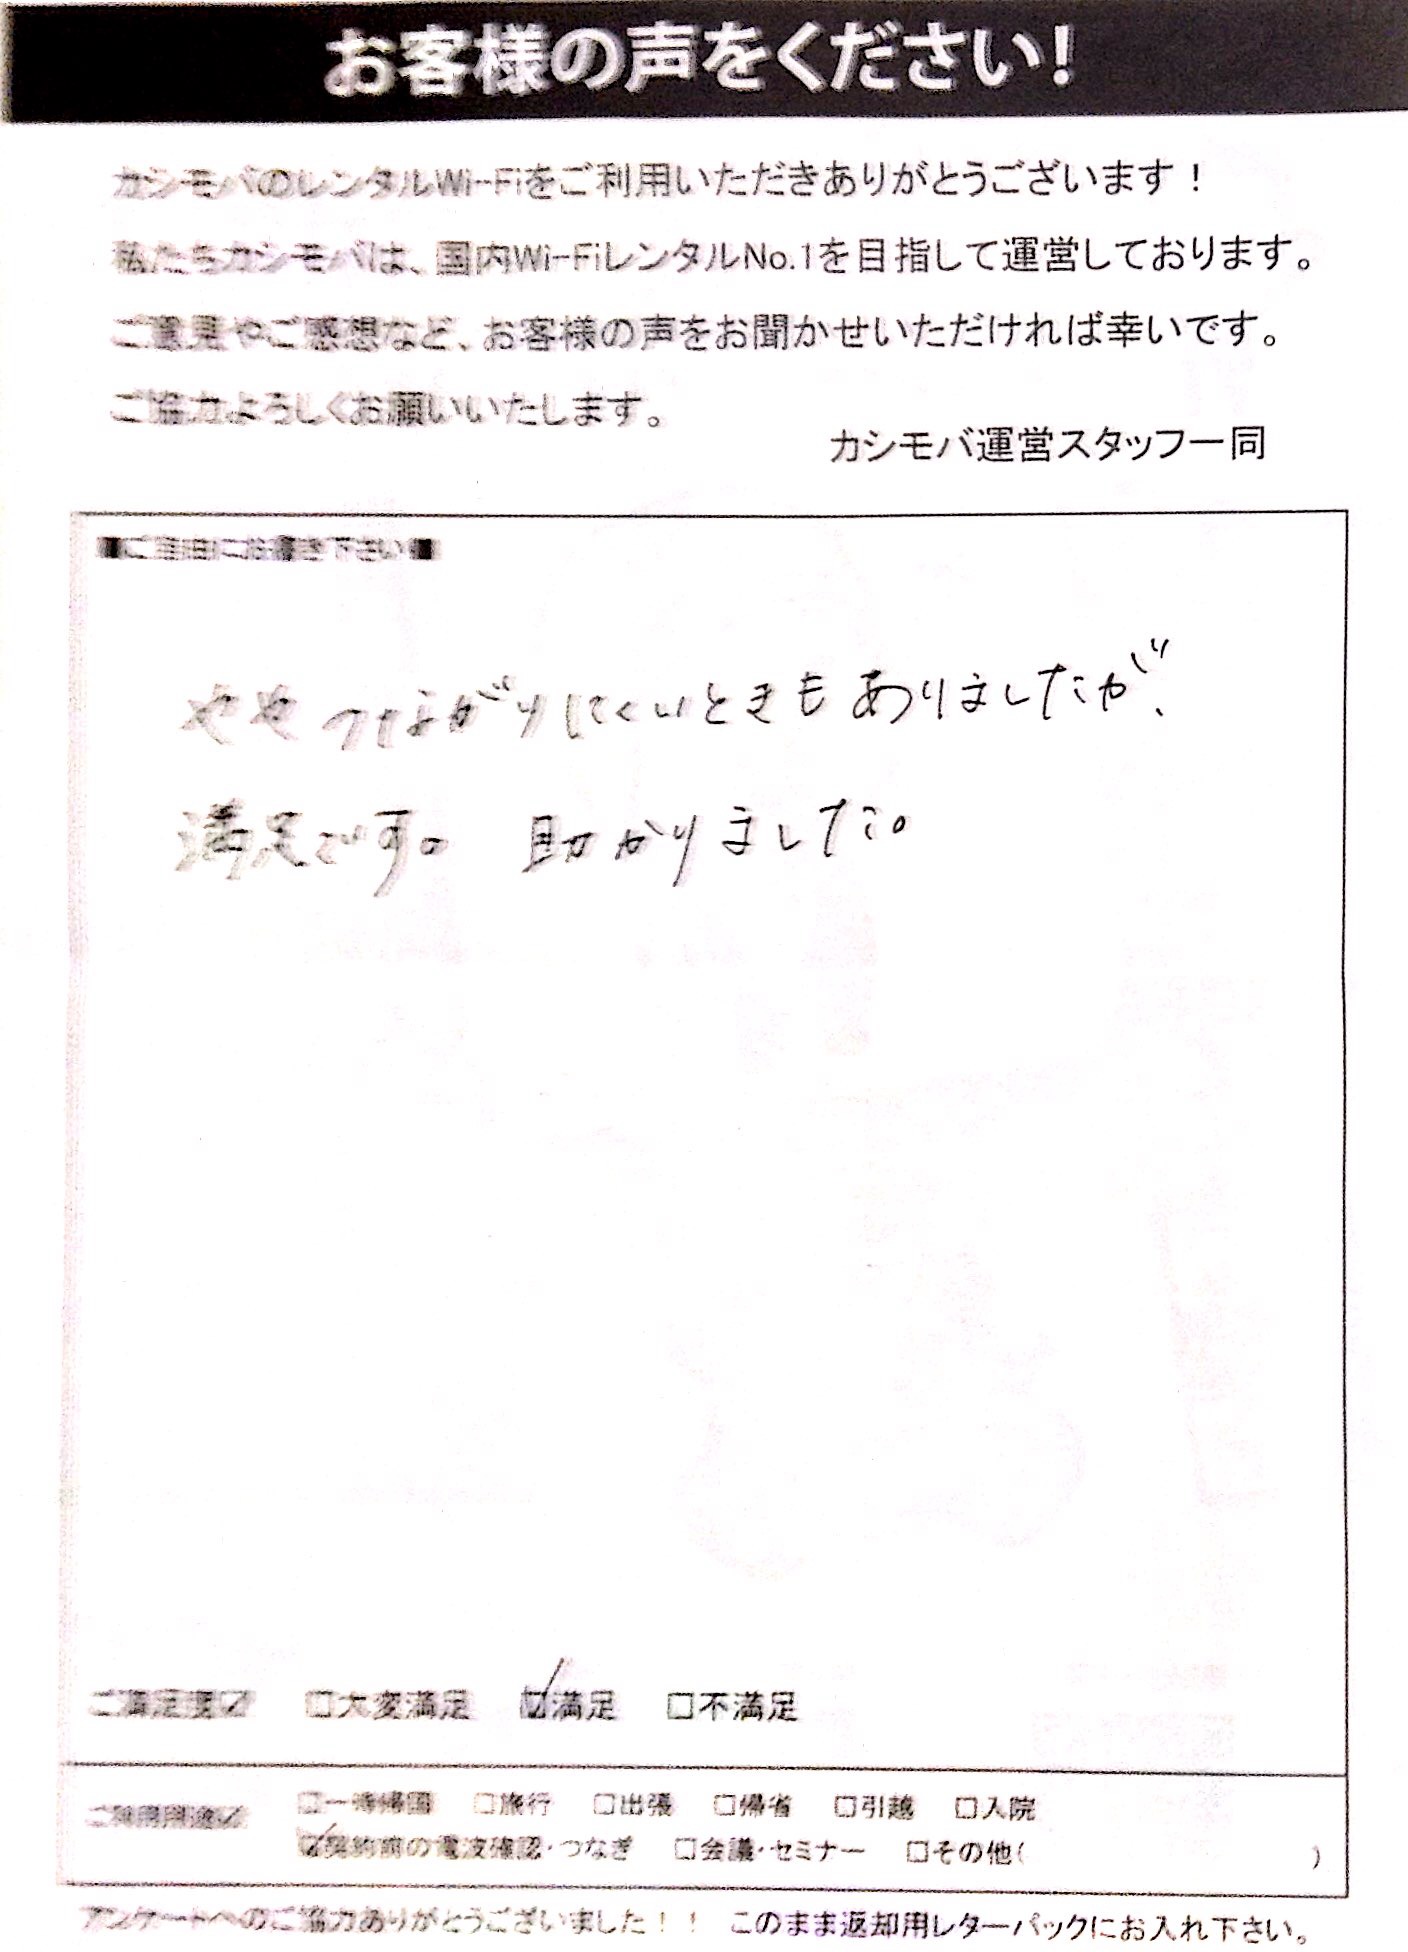 お客様の声をください!
カシモバのレンタルWi-Fiをご利用いただきありがとうございます！
私たちカシモバは、国内Wi-FiレンタルNo.1を目指して運営しております。
ご意見やご感想など、お客様の声をお聞かせいただければ幸いです。
ご協力よろしくお願いいたします。
カシモバ運営スタッフ一同
■ご自由にお書き下さい■
ややつながりにくいときもありましたが、
満足です。 助かりました。
ご満足度☑ □大変満足 ☑満足 □不満足
ご利用用途☑ □一時帰国 □旅行 □出張 □帰省 □引越 □入院
☑契約前の電波確認・つなぎ □会議・セミナー □その他( )
アンケートへのご協力ありがとうございました！！ このまま返却用レターパックにお入れ下さい。